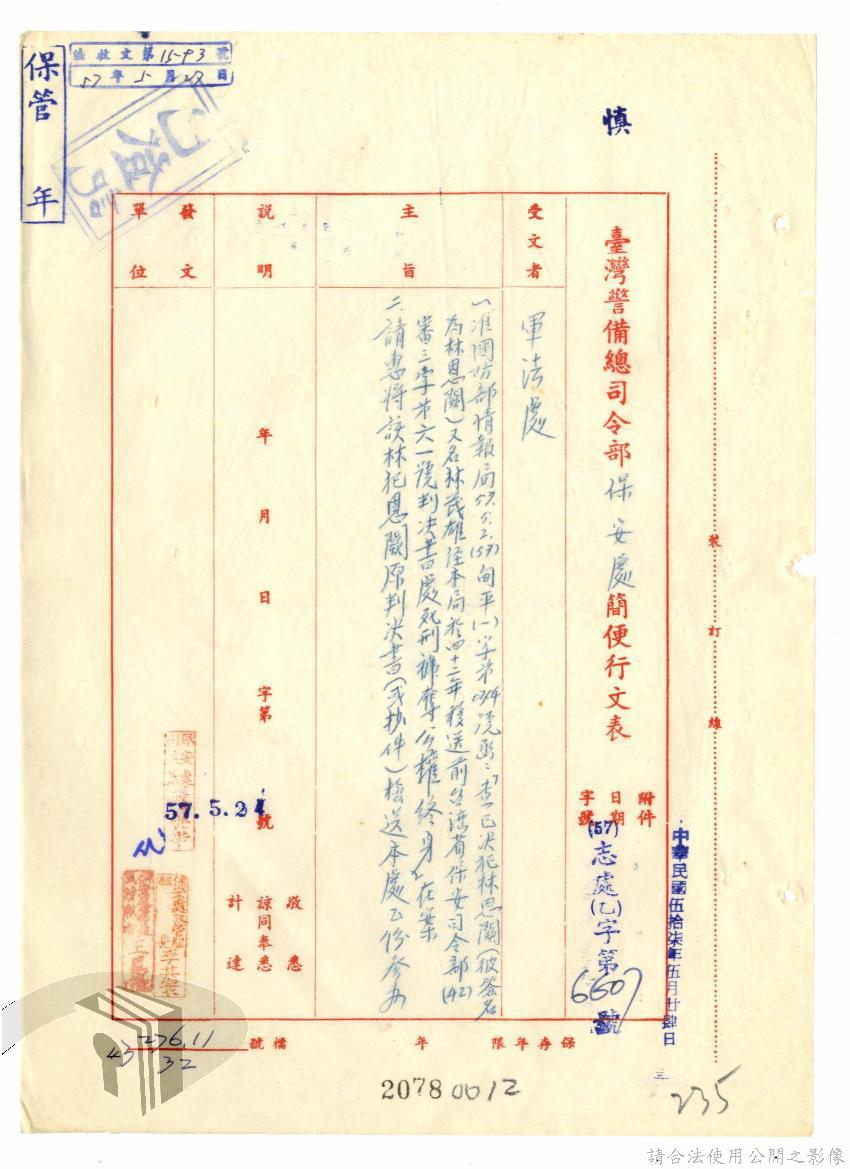 慎
臺灣警備總司令部保安處簡便行文表
附件
日期
字號
中華民國伍拾柒年五月廿肆日
(57)志處(乙)字第6607號
受文者
軍法處
主旨
一、准國防部情報局57.5.2.(57)甸平(一)字第034號函：「查已決犯林恩闕(彼簽名
為林恩闕)又名林茂雄經本局於四十二年移送前台灣省保安司令部(42)
審三字第六一號判決書處死刑褫奪公權終身」在案
二、請惠將該林犯恩闕原判決書(或抄件)檢送本處乙份參辦
說明
年 月 日 字第 號
敬悉
諒同奉悉
計達
發文
單位
57.5.2
保管 年
總收文第1593號
57年5月27日
保存年限 年
檔號
276.11
43 32
20780012
235
三
裝
訂
線
請合法使用公開之影像